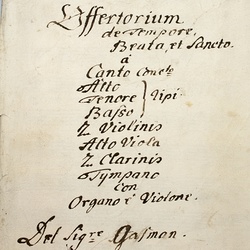 Offertorium
de Tempore,
Beata, et Sancto.
à
Canto Conc:to
Alto
Tenore } Ripi:
Basso
2 Violinis
Alto Viola
2 Clarinis
Tympano
con
Organo è Violone.
Del Sig:re Gasman.